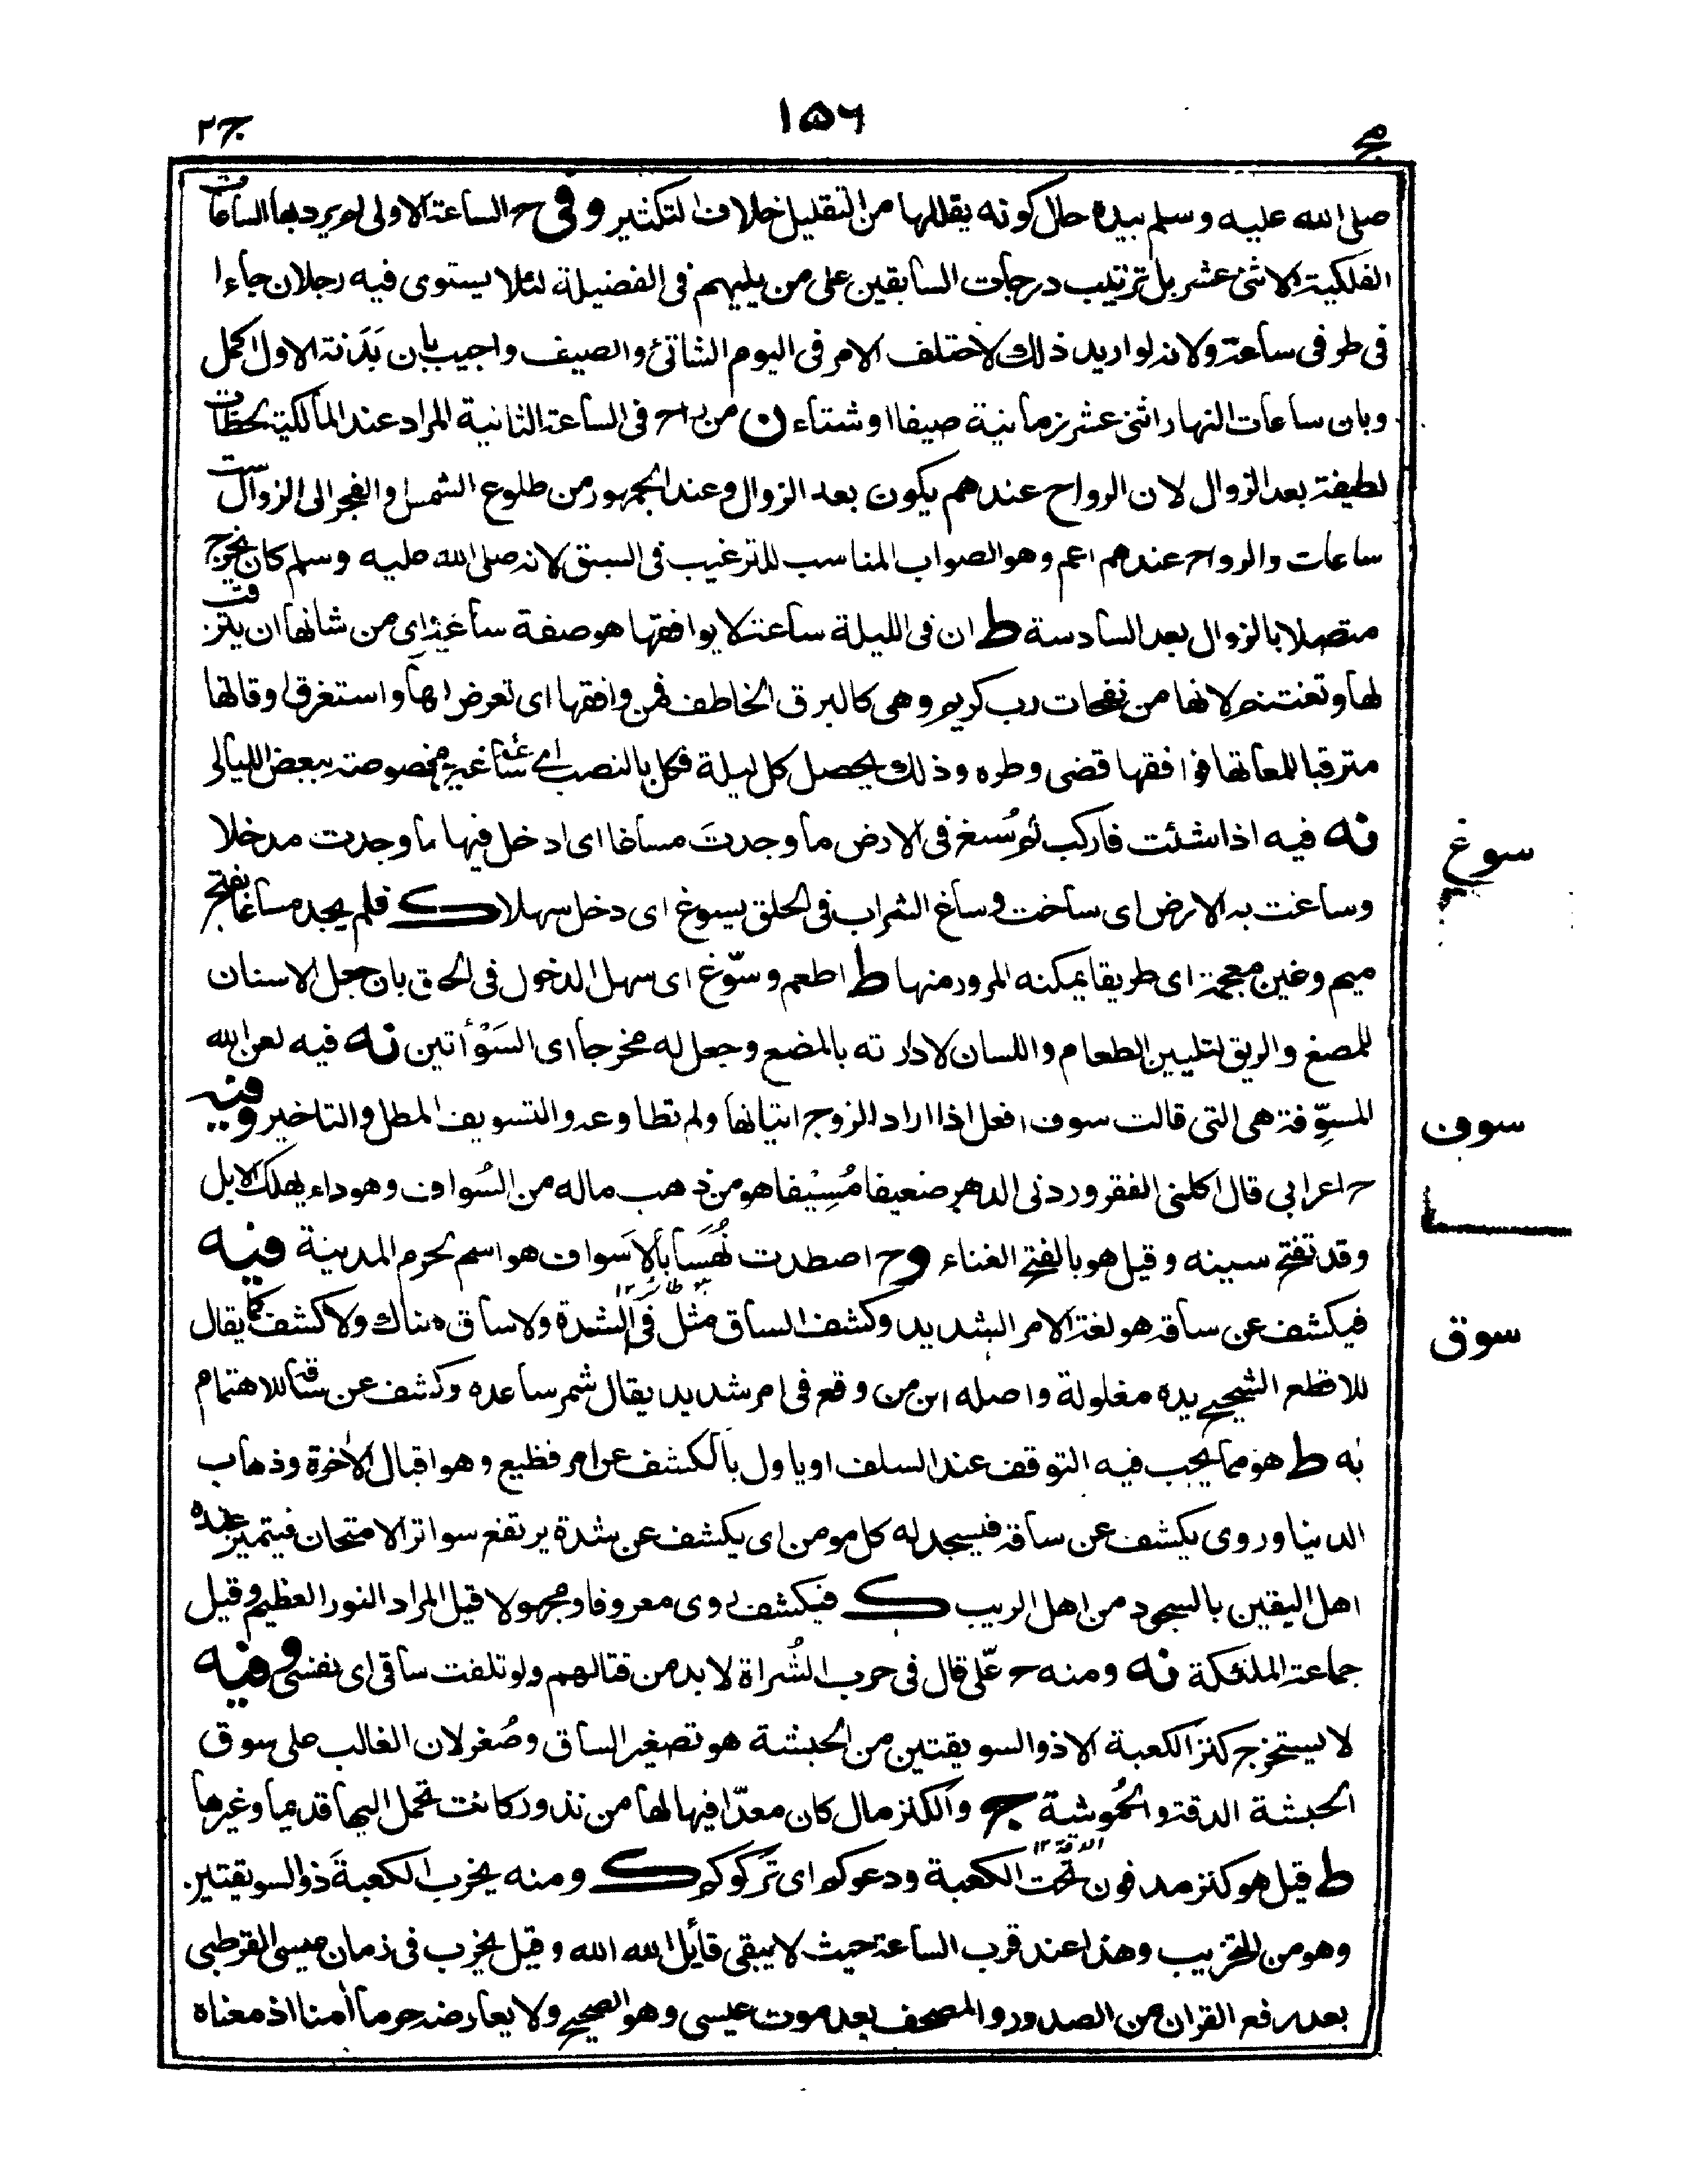 مج
١٥٦
ج٢
صلى الله عليه وسلم بيده حال كونه يقللها من التقليل خلاف التكثير وفى ح الساعة الاولى لم يرد بها الساعات
الفلكية الاثنى عشر بل ترتيب درجات السابقين على من يليهم فى الفضيلة لئلا يستوى فيه رجلان جاءا
فى طرفى ساعة ولانه لو اريد ذلك لاختلف الامر فى اليوم الشاتئ والصيف واجيب بان بَدَنة الاول اكمل
وبان ساعات النهار اثنى عشر زمانية صيفا او شتاء ن من راح فى الساعة الثانية المراد عند المالكية لحظات
لطيفة بعد الزوال لان الرواح عندهم يكون بعد الزوال وعند الجمهور من طلوع الشمس والفجر الى الزوال ست
ساعات والرواح عندهم اعم وهو الصواب المناسب للترغيب فى السبق لانه صلى الله عليه وسلم كان يخرج
متصلا بالزوال بعد السادسة ط ان فى الليلة ساعة لا يوافقها هو صفة ساعة اى من شانها ان يترقت
لها وتغتنم لانها من نفحات رب كريم وهى كالبرق الخاطف فمن وافقها اى تعرض لها واستغرق اوقاتها
مترقبا للمعانها فوافقها قضى وطره وذلك يحصل كل ليلة فكل بالنصب اى ساعة غير مخصوصة ببعض الليالى
نه فيه اذا شئت فاركب ثم سُغ فى الارض ما وجدتَ مساغا اى ادخل فيها ما وجدت مدخلا
وساغت به الارض اى ساخت وساغ الشراب فى الحلق يسوغ اى دخل سهلا ك فلم يجد مساغا بفتح
ميم وغين معجمة اى طريقا يمكنه المرور منها ط اطعم وسوّغ اى سهل الدخول فى الحلق بان جعل الاسنان
للمضغ والريق لتليين الطعام واللسان لادارته بالمضع وجعل له مخرجا اى السَوْأتين نه فيه لعن الله
المسوِّفة هى التى قالت سوف افعل اذا اراد الزوج اتيانها ولم تطاوعه والتسويف المطل والتاخير وفيه
ح اعرابى قال اكلنى الفقر وردنى الدهر ضعيفا مُسِيْفا هو من ذهب ماله من السُواف وهو داء يهلك الابل
وقد تفتح سينه وقيل هو بالفتح الفناء وح اصطدت نُهَسًا بالاَسواف هو اسم لحرم المدينة فيه
طائر ١٢
فيكشف عن ساقه هو لغة الامر الشديد وكشف الساق مثل فى الشدة ولا ساق هناك ولا كشف كما يقال
للاقطع الشحيح يده مغلولة واصله ان من وقع فى امر شديد يقال شمر ساعده وكشف عن ساقه للاهتمام
به ط هو مما يجب فيه التوقف عند السلف او ياول بالكشف عن امر فظيع وهو اقبال الأخرة وذهاب
الدنيا وروى يكشف عن ساقه فيسجد له كل مومن اى يكشف عن شدة يرتفع سواتر الامتحان فيتميز عنده
اهل اليقين بالسجود من اهل الريب ك فيكشف روى معروفا ومجهولا قيل المراد النور العظيم وقيل
جماعة الملئكة نه ومنه ح علّى قال فى حرب الشُراة لا بد من قتالهم ولو تلفت ساقى اى نفسى وفيه
لا يستخرج كنز الكعبة الا ذو السويقتين من الحبشة هو تصغير الساق وصُغر لان الغالب على سوق
الحبشة الدقة والحُموشة ج والكنز مال كان معدّا فيها لها من نذور كانت تحمل اليها قديما وغيرها
الدقة ١٢
ط قيل هو كنز مدفون تحت الكعبة ودعوكم اى تَركوكم ك ومنه يخرب الكعبةَ ذو السويقتين
وهو من التخريب وهذا عند قرب الساعة حيث لا يبقى قائل الله الله وقيل يخرب فى زمان عيسى القرطبى
بعد رفع القران من الصدور والمصحف بعد موت عيسى وهو الصحيح ولا يعارضه حرما أمنا اذ معناه
سوغ
سوف
سوق